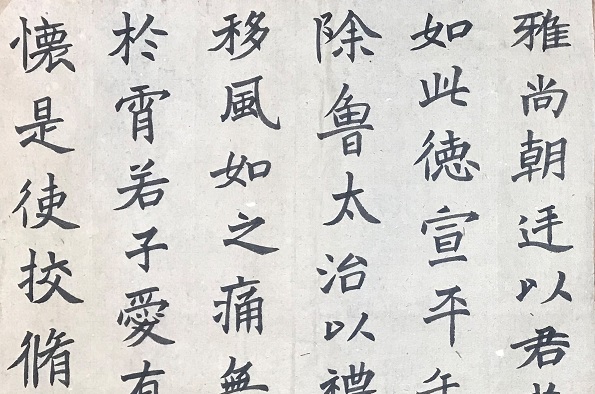 雅尚朝廷以君
如此徳宣平年
除魯太治以禮
移風如之痛無
於霄若子愛有
懐是使挍脩